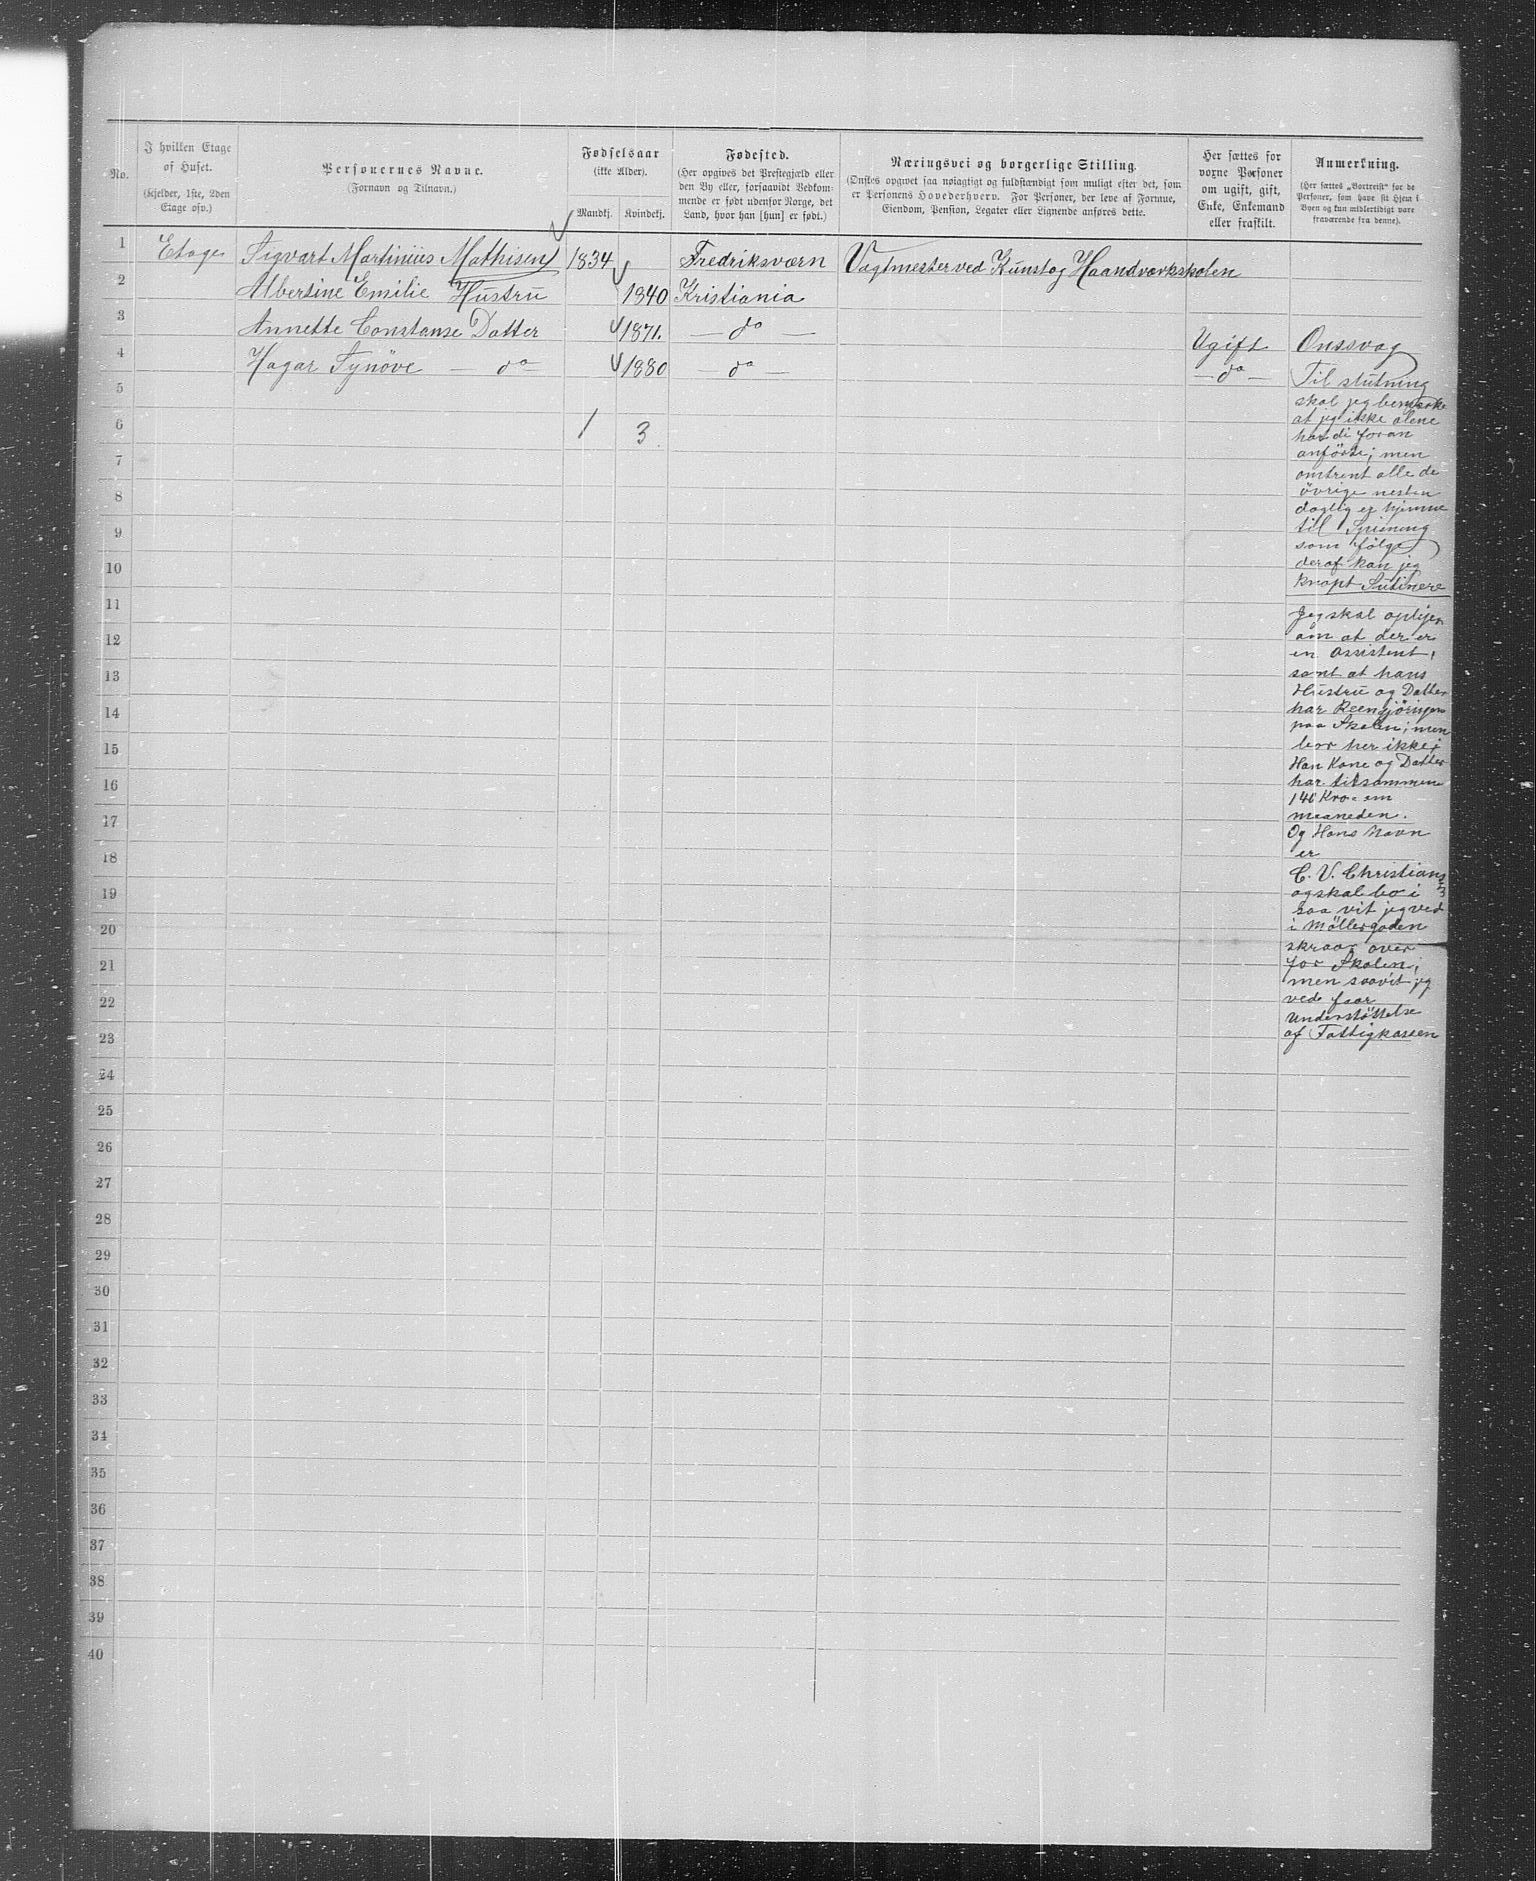 No.
I hvilken Etage
of Huset.
(Kjelder, 1ste, 2den
Etage osv.)
Personernes Navne.
(Fornavn og Tilnavn.)
Fødselsaar
(ikke Alder).
Mandkj.
Kvindekj.
Fødested.
(Her opgives det Prestegjæld eller
den By eller, forsaavidt Vedkom-
mende er født udenfor Norge, det
Land, hvor han [hun] er født.)
Næringsvei og borgerlige Stilling.
(Ønskes opgivet saa nøiagtigt og fuldstændigt som muligt efter det, som
er Personens Hovederhverv. For Personer, der leve af Formue,
Eiendom, Pension, Legater eller Lignende anføres dette.
Her sættes for
voxne Personer
om ugift, gift,
Enke, Enkemand
eller fraskilt.
Anmerkning.
(Her sættes „Bortreist“ for de
Personer, som have sit Hjem i
Byen og kun midlertidigt vare
fraværende fra denne).
1 Etage Sigvart Martinius Mathisen 1834 Fredriksværn Vagtmester ved Kunst og Haandværkskolen
2 Albertine Emilie Hustru 1840 Kristiania
3 Annette Constanse Datter 1871. — do — Ugift Onssvag
4 Hagar Synöve — do 1880 — do — — do —
5
6 1 3
7
8
9
10
11
12
13
14
15
16
17
18
19
20
21
22
23
24
25
26
27
28
29
30
31
32
33
34
35
36
37
38
39
40
Til slutning
skal jeg bemærke
at jeg ikke alene
har di foran
anförte; men
omtrent alle de
övrige nesten
daglig er hjemme
til Spisning
som fölge
deraf kan jeg
knapt Sutinere
Jeg skal oplyse
om at der er
en assistent,
samt at hans
Hustru og Datter
har Reengjöringen
paa Skolen; men
bor her ikke;
Han Kone og Datter
har tilsammen
140 Kro- em
maaneden.
Og Hans Navn
er
C. V. Christians
og skal bo i
saa vit jeg ved
i Möllergaden
skraas over
for Skolen;
men saavit jeg
ved faar
Understöttelse
af Fattigkassen